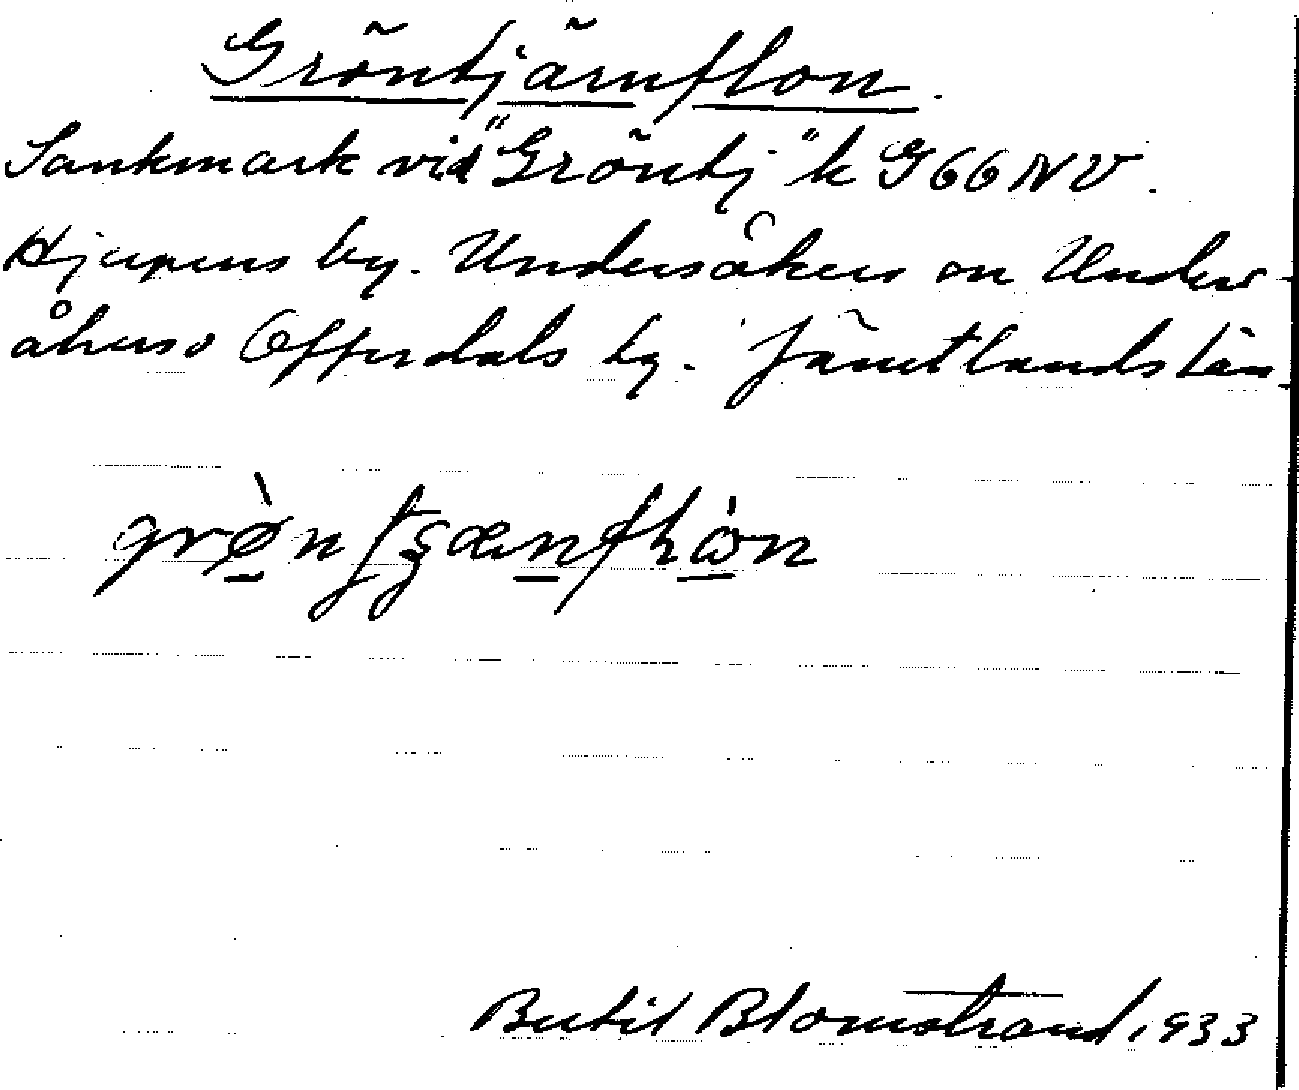 Gröntjärnflon.
Sankmark vid "Gröntj" k G66NV.
Hjerpens by. Undersåkers sn Under-
såkers o Offerdals tg. Jämtlands län
Bertil Blomstrand, 1933